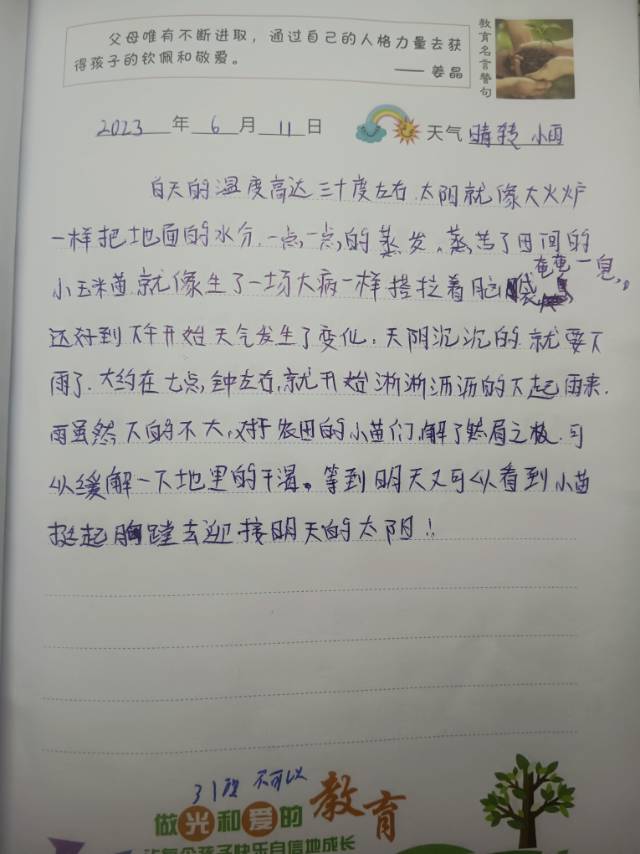 父母唯有不断进取，通过自己的人格力量去获
得孩子的钦佩和敬爱。
——姜晶
教育名言警句
2023年6月11日
天气 晴转小雨
白天的温度高达三十度左右.太阳就像大火炉
一样把地面的水分.一点,一点,的蒸发.蒸苦了田间的
小玉米苗.就像生了一场大病一样搭拉着脑袋奄奄一息,。
还好到下午开始天气发生了变化.天阴沉沉的.就要下
雨了.大约在七点,钟左右,就开始淅淅沥沥的下起雨来.
雨虽然下的不大,对于农田的小苗们,解了燃眉之极.可
以缓解一下地里的干渴。等到明天又可以看到小苗
挺起胸膛去迎接明天的太阳!
31级 不可以
做光和爱的教育
让每个孩子快乐自信地成长